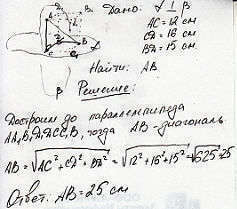 Дано: α ⊥ β
AC = 12 см
CD = 16 см
BD = 15 см
Найти: AB
Решение:
Достроим до параллелепипеда
тогда AB - диагональ
AB = √AC² + CD² + BD² = √12² + 16² + 15² = √625 = 25
Ответ: AB = 25 см